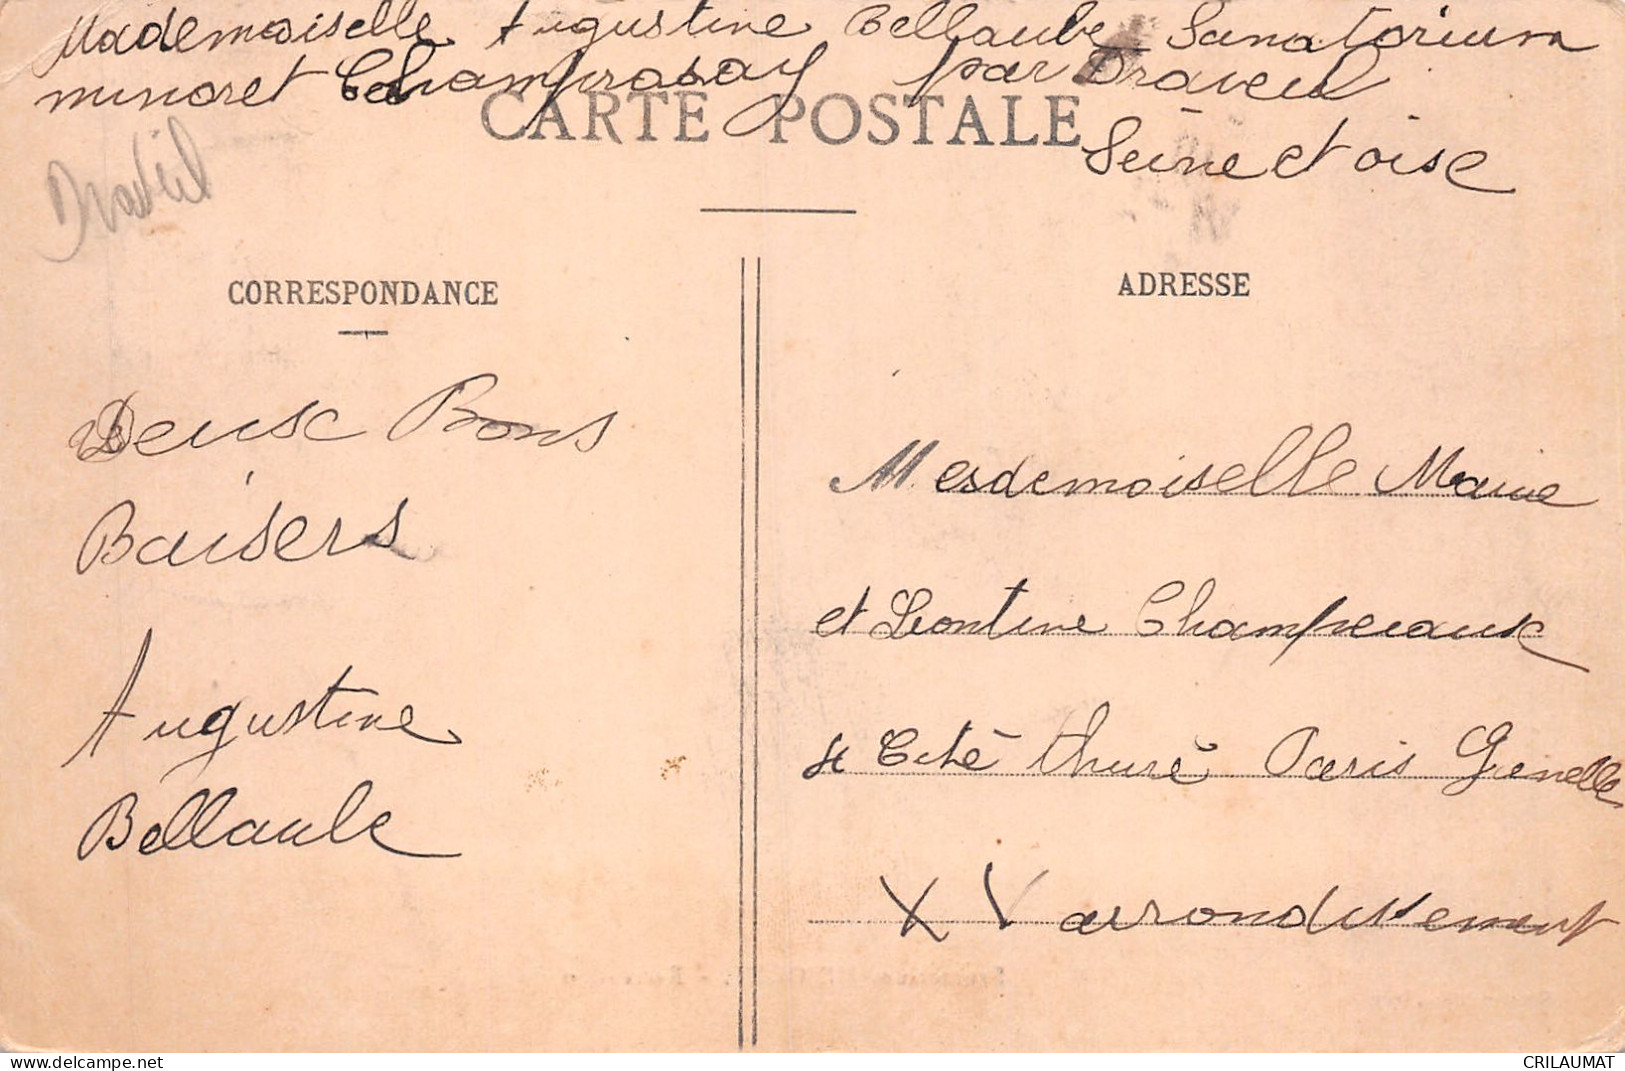 Mademoiselle Augustine Bellaube Sanatorium
minoret Champrosay par Draveil
Seine et oise
CARTE POSTALE
Draveil
CORRESPONDANCE
ADRESSE
Deuse Bons
Baisers
Augustine
Bellaube
Mesdemoiselle Marie
et Leontine Champeaux
Cité thuré Paris Grenelle
XV arrondissement
www.delcampe.net
CRILAUMAT